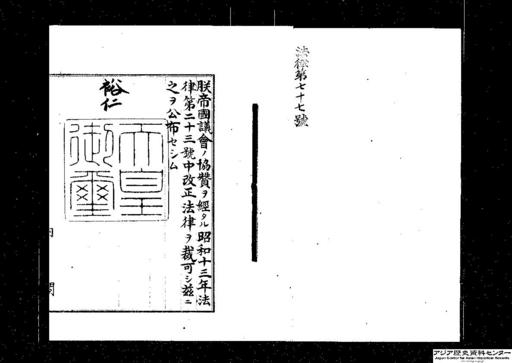 法律第七十七號
朕帝國議會ノ協贊ヲ經タル昭和十三年法
律第二十三號中改正法律ヲ裁可シ茲ニ
之ヲ公布セシム
裕仁
天皇
御璽
内
閣
アジア歴史資料センター
Japan Center for Asian Historical Records